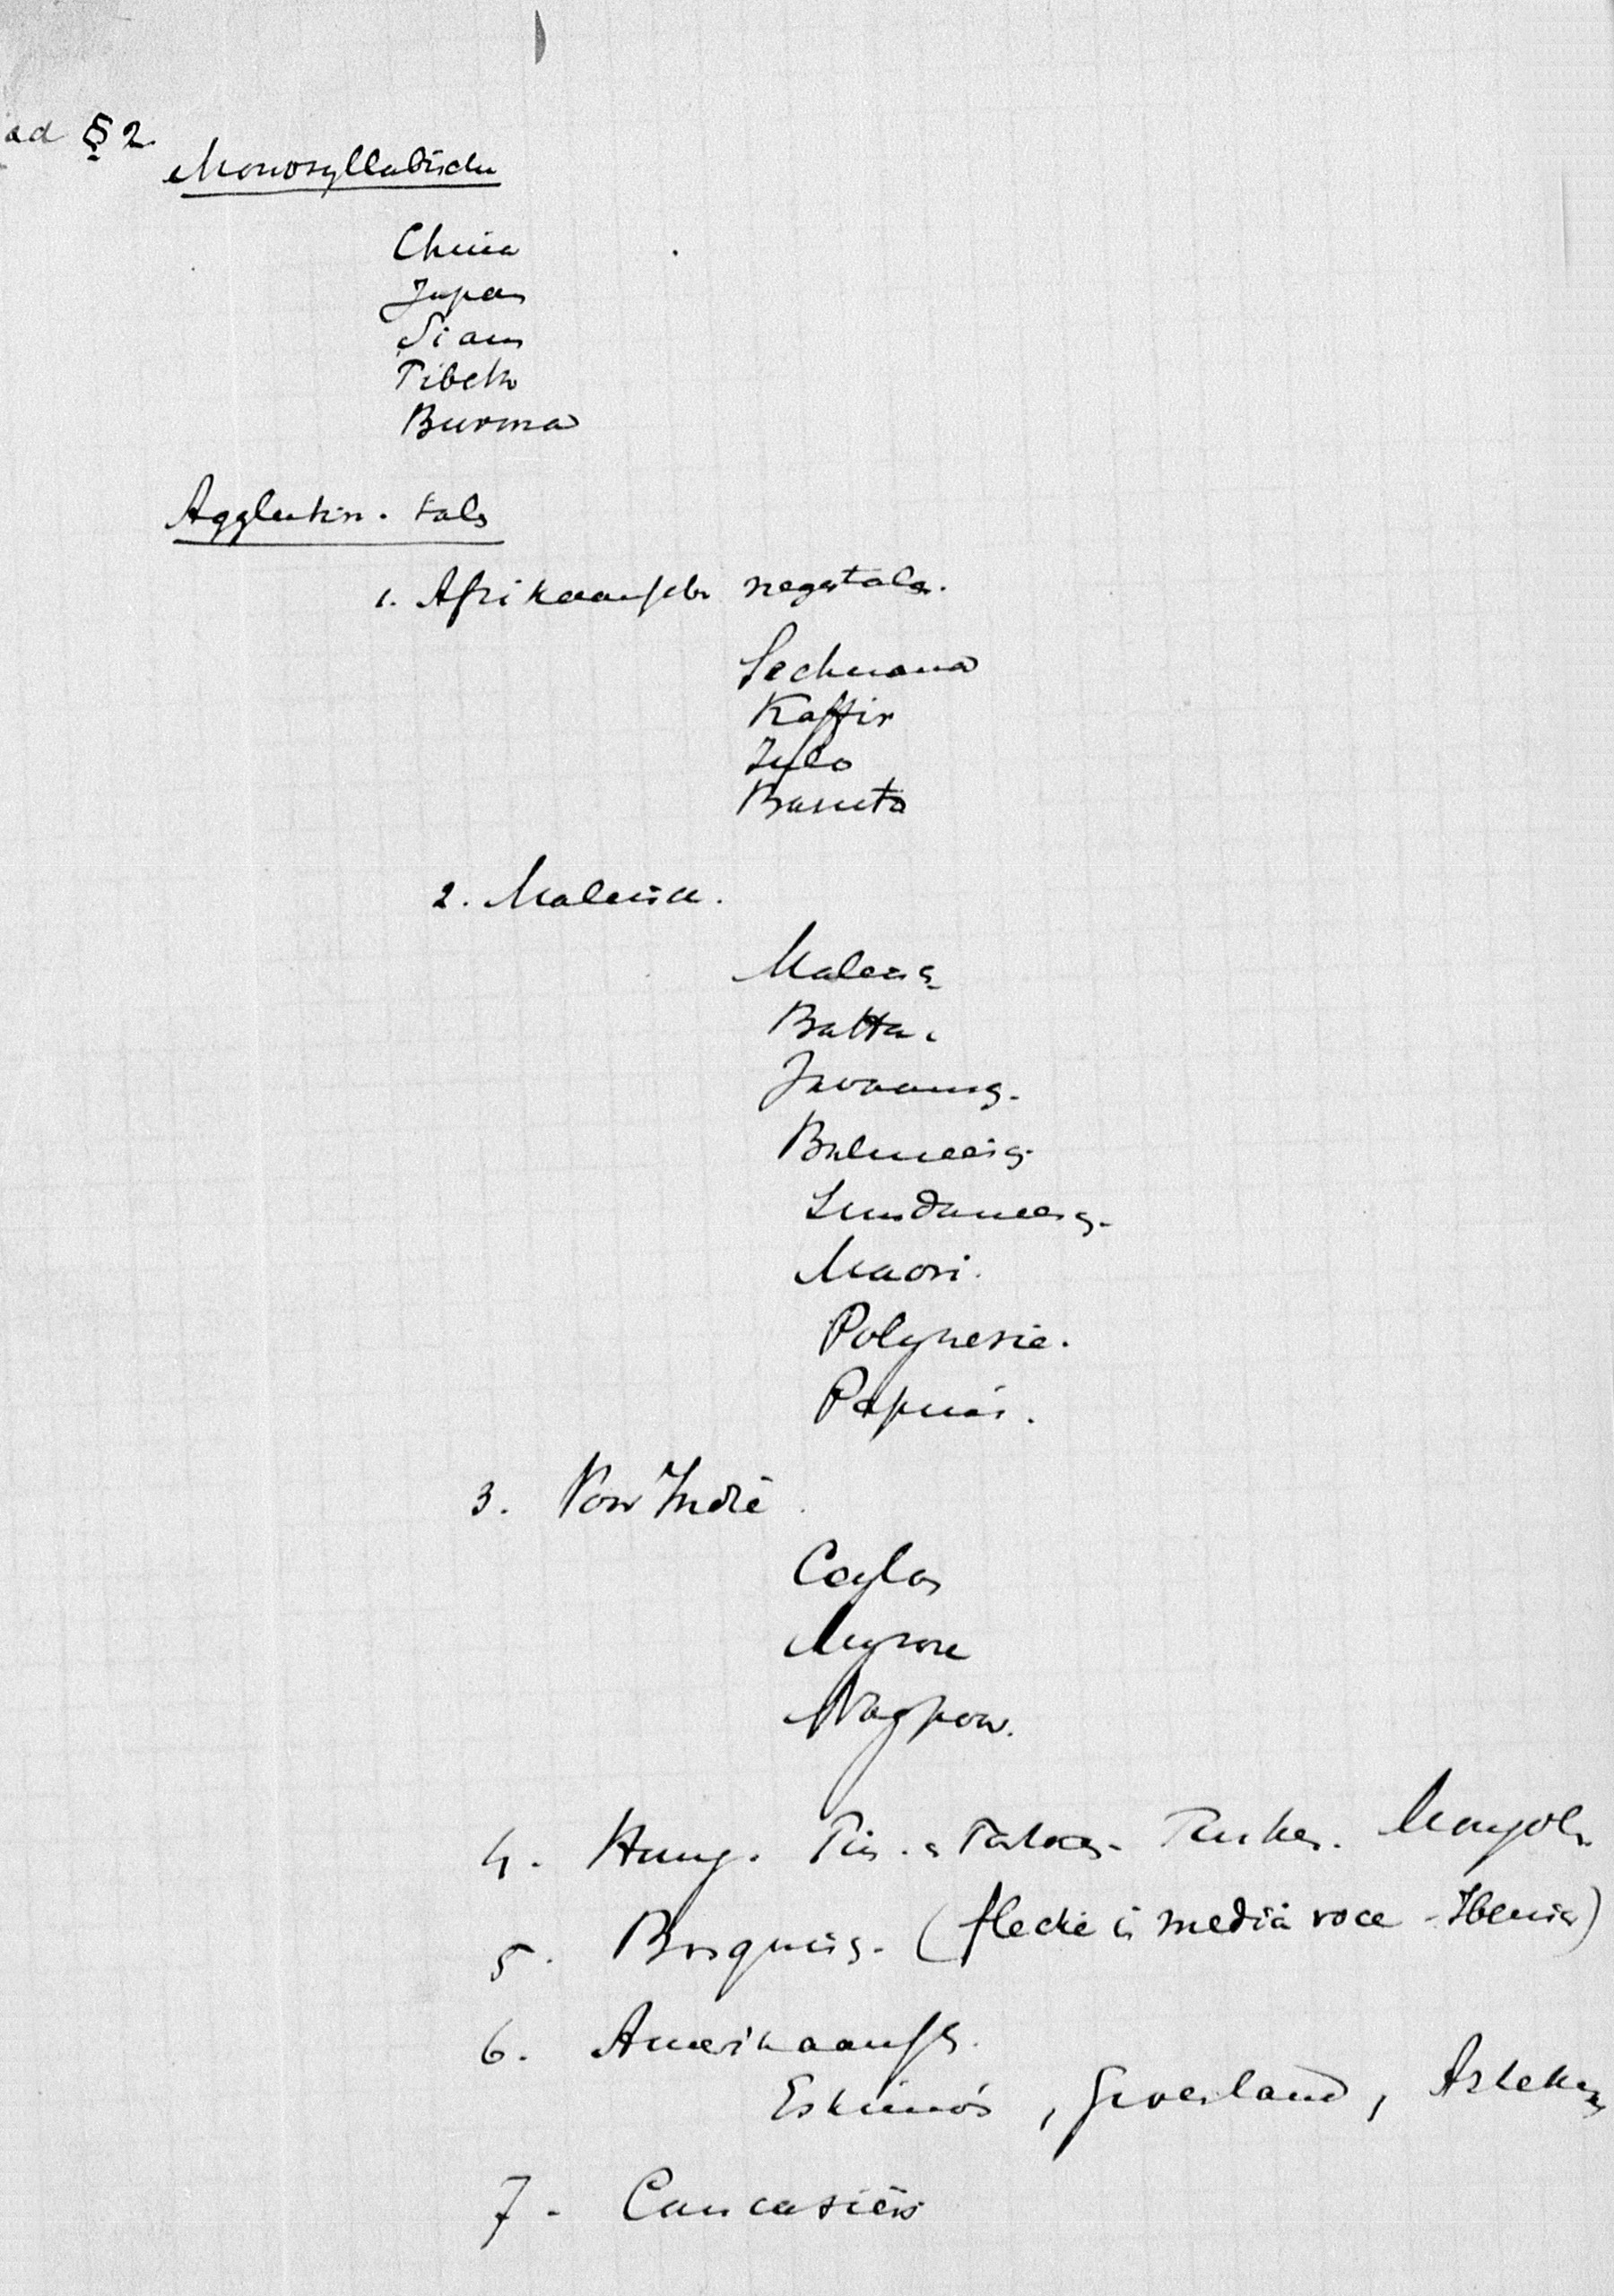 ad § 2.
Monosyllabische
China
Japan
Siam
Tibeth
Burma
Agglutin. tals
1. Afrikaansche negertalen.
Sechuana
Kaffir
Zulo
Basuto
2. Maleische.
Maleisch
Batta.
Javaansch.
Balineesch.
Sundaneesch.
Maori.
Polynesie.
Papua's.
3. Voor Indië.
Ceylon
Mysore
Nagpour.
4. Hong. Fin. Turken. Mongolen
5. Baskisch. (flectie in mediâ voce - Iberiër)
6. Amerikaansch.
Eskimo's, Groenland, Azteken
7. Caucasiërs